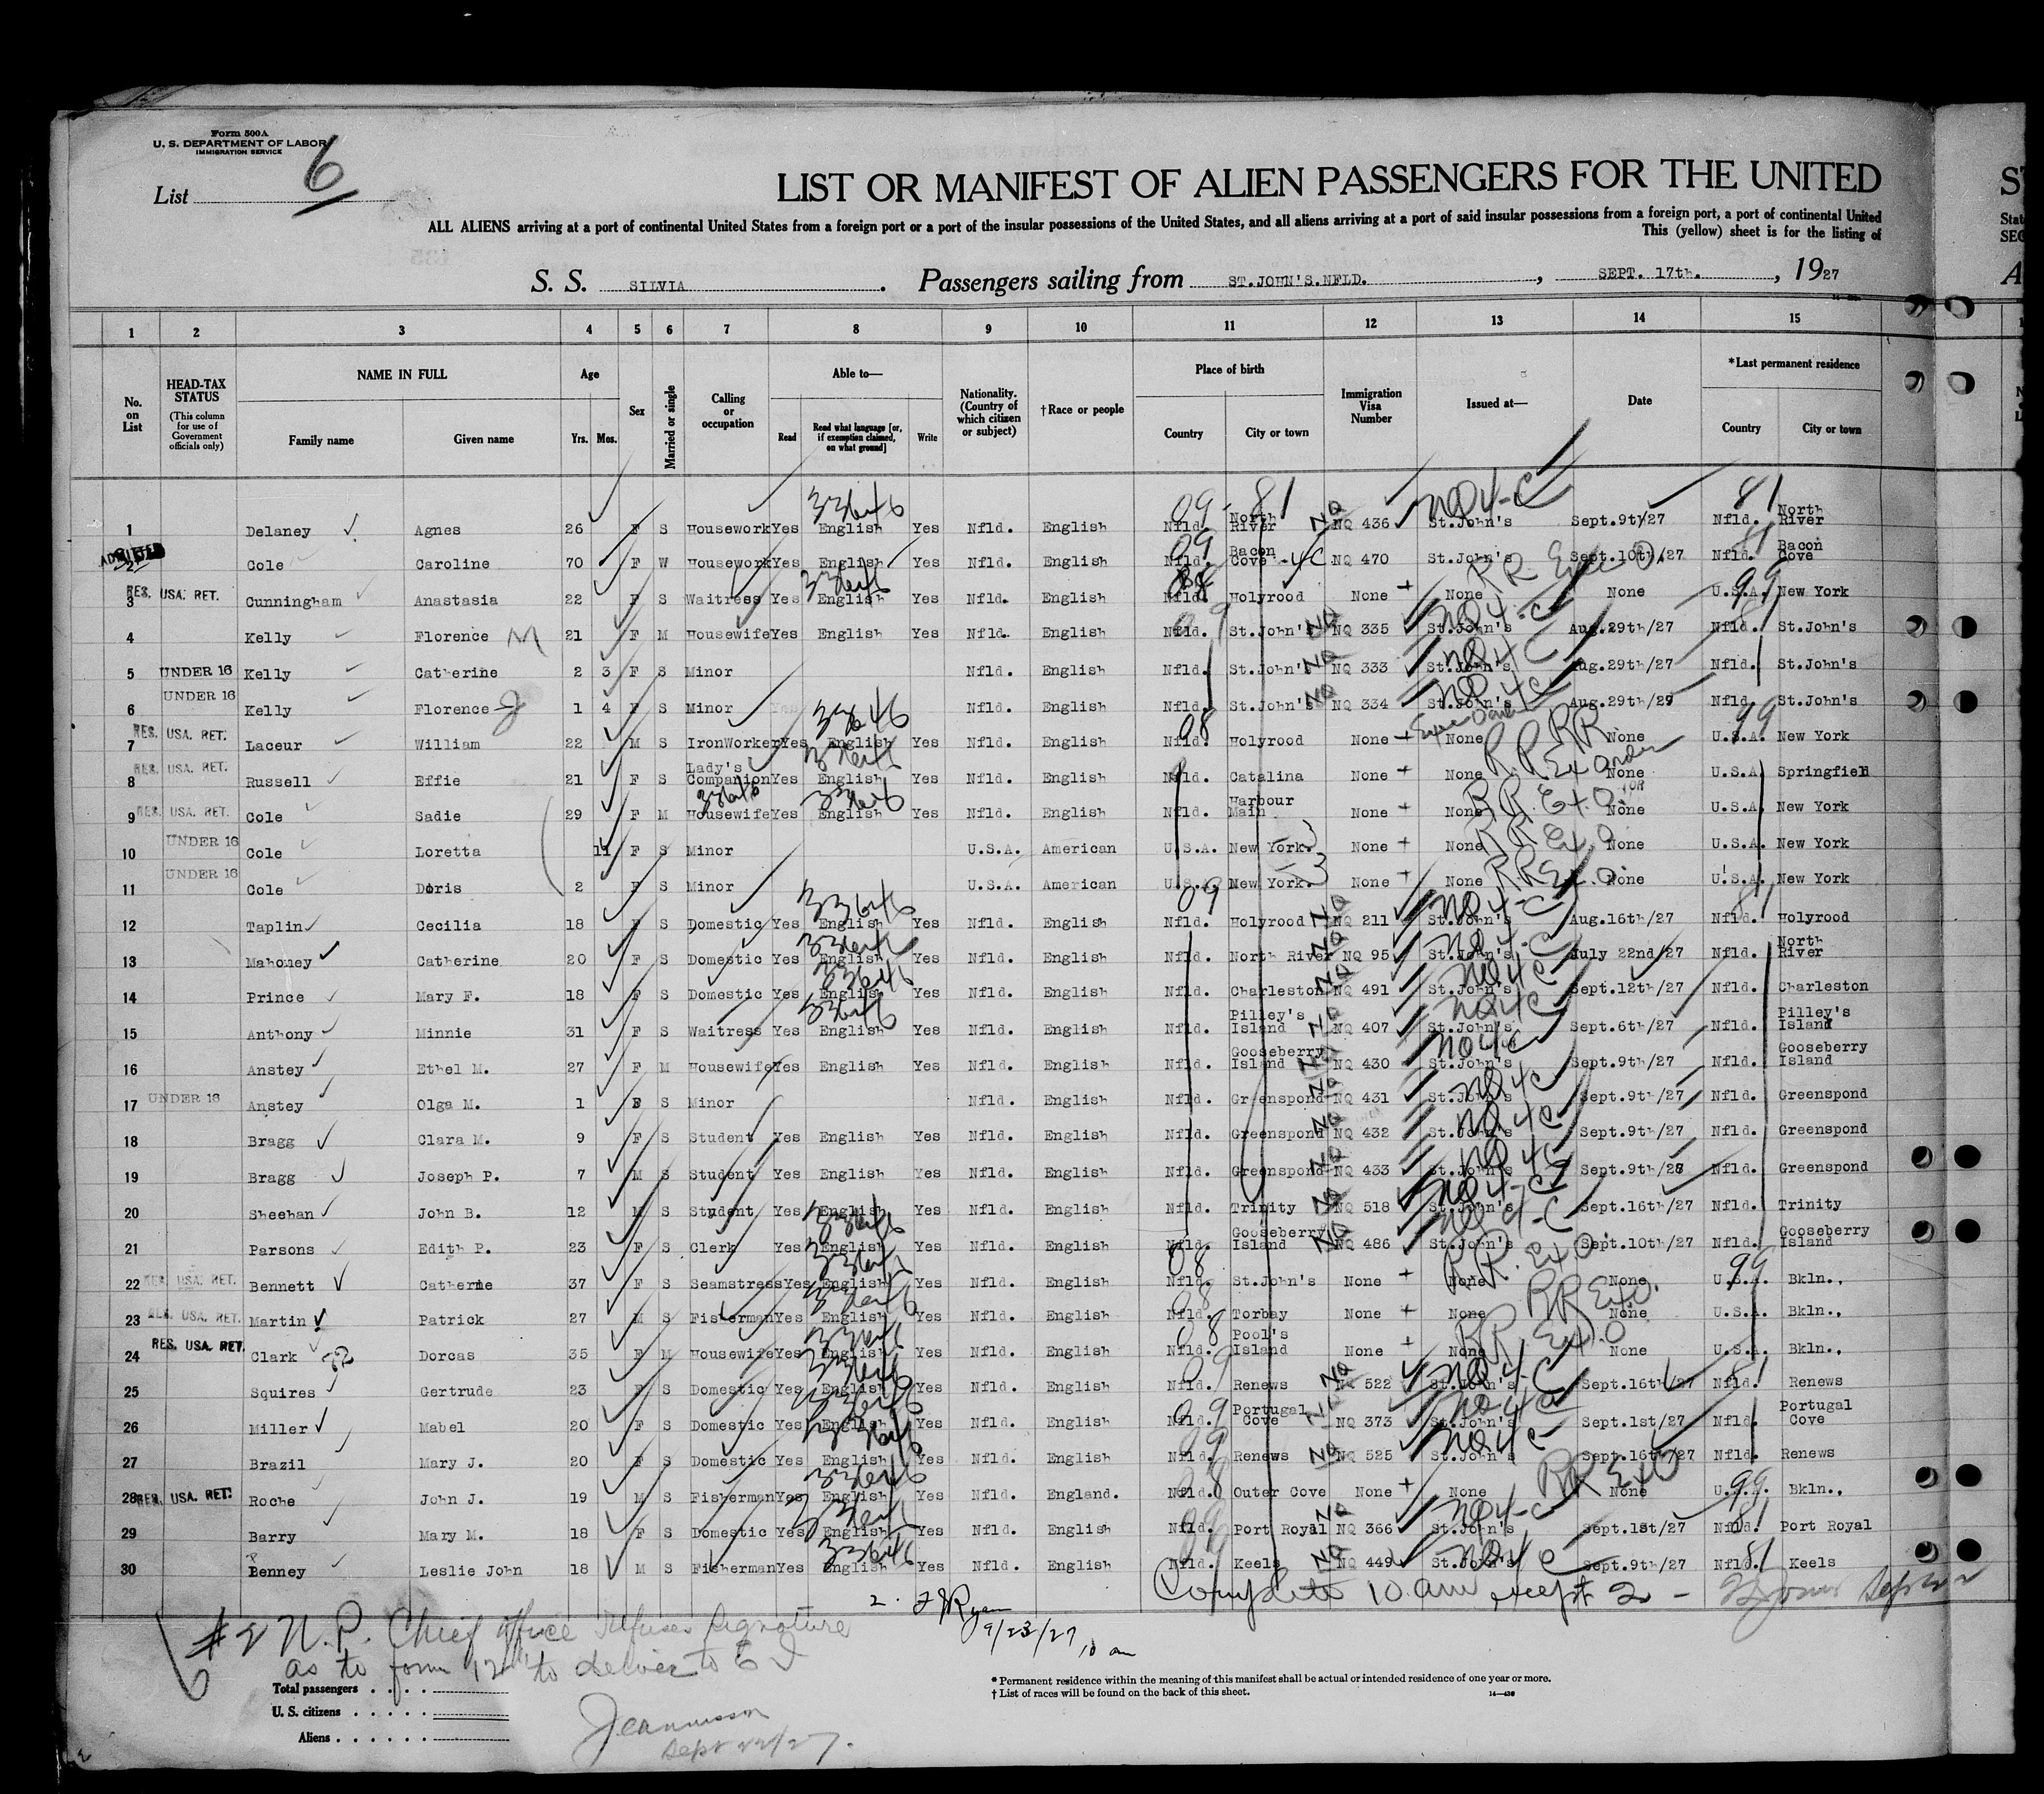 Form 500A
U. S. DEPARTMENT OF LABOR
IMMIGRATION SERVICE
List 6
LIST OR MANIFEST OF ALIEN PASSENGERS FOR THE UNITED
ALL ALIENS arriving at a port of continental United States from a foreign port or a port of the insular possessions of the United States, and all aliens arriving at a port of said insular possessions from a foreign port, a port of continental United
This (yellow) sheet is for the listing of
S. S. SILVIA. Passengers sailing from ST.JOHN'S.NFLD., SEPT. 17th., 1927
1 2 3 4 5 6 7 8 9 10 11 12 13 14 15
No. on List
HEAD-TAX STATUS (This column for use of Government officials only)
NAME IN FULL Family name Given name
Age Yrs. Mos.
Sex
Married or single
Calling or occupation
Able to— Read Read what language [or, if exemption claimed, on what ground] Write
Nationality. (Country of which citizen or subject)
†Race or people
Place of birth Country City or town
Immigration Visa Number
Issued at—
Date
*Last permanent residence Country City or town
1 Delaney Agnes 26 F S Housework Yes English Yes Nfld. English Nfld. North River NQ 436 St.John's Sept.9th/27 Nfld. North River
2 ADMITTED Cole Caroline 70 F W Housework Yes English Yes Nfld. English Nfld. Bacon Cove NQ 470 St.John's Sept.10th/27 Nfld. Bacon Cove
3 RES. USA. RET. Cunningham Anastasia 22 F S Waitress Yes English Yes Nfld. English Nfld. Holyrood None None None U.S.A. New York
4 Kelly Florence M 21 F M Housewife Yes English Yes Nfld. English Nfld. St.John's NQ 335 St.John's Aug.29th/27 Nfld. St.John's
5 UNDER 16 Kelly Catherine 2 3 F S Minor Nfld. English Nfld. St.John's NQ 333 St.John's Aug.29th/27 Nfld. St.John's
6 UNDER 16 Kelly Florence J 1 4 F S Minor Nfld. English Nfld. St.John's NQ 334 St.John's Aug.29th/29 Nfld. St.John's
7 RES. USA. RET. Laceur William 22 M S IronWorker Yes English Yes Nfld. English Nfld. Holyrood None None None U.S.A. New York
8 RES. USA. RET. Russell Effie 21 F S Lady's Companion Yes English Yes Nfld. English Nfld. Catalina None None None U.S.A. Springfield
9 RES. USA. RET. Cole Sadie 29 F M Housewife Yes English Yes Nfld. English Nfld. Harbour Main None None None U.S.A. New York
10 UNDER 16 Cole Loretta 11 F S Minor U.S.A. American U.S.A. New York. None None None U.S.A. New York
11 UNDER 16 Cole Doris 2 F S Minor U.S.A. American U.S.A. New York. None None None U.S.A. New York
12 Taplin Cecilia 18 F S Domestic Yes English Yes Nfld. English Nfld. Holyrood NQ 211 St.John's Aug.16th/27 Nfld. Holyrood
13 Mahoney Catherine 20 F S Domestic Yes English Yes Nfld. English Nfld. North River NQ 95 St.John's July 22nd/27 Nfld. North River
14 Prince Mary F. 18 F S Domestic Yes English Yes Nfld. English Nfld. Charleston NQ 491 St.John's Sept.12th/27 Nfld. Charleston
15 Anthony Minnie 31 F S Waitress Yes English Yes Nfld. English Nfld. Pilley's Island NQ 407 St.John's Sept.6th/27 Nfld. Pilley's Island
16 Anstey Ethel M. 27 F M Housewife Yes English Yes Nfld. English Nfld. Gooseberry Island NQ 430 St.John's Sept.9th/27 Nfld. Gooseberry Island
17 UNDER 16 Anstey Olga M. 1 S Minor Nfld. English Nfld. Greenspond NQ 431 St.John's Sept.9th/27 Nfld. Greenspond
18 Bragg Clara M. 9 F S Student Yes English Yes Nfld. English Nfld. Greenspond NQ 432 St.John's Sept.9th/27 Nfld. Greenspond
19 Bragg Joseph P. 7 M S Student Yes English Yes Nfld. English Nfld. Greenspond NQ 433 St.John's Sept.9th/28 Nfld. Greenspond
20 Sheehan John B. 12 M S Student Yes English Yes Nfld. English Nfld. Trinity NQ 518 St.John's Sept.16th/27 Nfld. Trinity
21 Parsons Edith P. 23 F S Clerk Yes English Yes Nfld. English Nfld. Gooseberry Island NQ 486 St.John's Sept.10th/27 Nfld. Gooseberry Island
22 RES. USA. RET. Bennett Catherne 37 F S Seamstress Yes English Yes Nfld. English Nfld. St.John's None None None U.S.A. Bkln.,
23 RES. USA. RET. Martin Patrick 27 M S Fisherman Yes English Yes Nfld. English Nfld. Torbay None None None U.S.A. Bkln.,
24 RES. USA. RET. Clark Dorcas 35 F M Housewife Yes English Yes Nfld. English Nfld. Pool's Island None None None U.S.A. Bkln.,
25 Squires Gertrude 23 F S Domestic Yes English Yes Nfld. English Nfld. Renews NQ 522 St.John's Sept.16th/27 Nfld. Renews
26 Miller Mabel 20 F S Domestic Yes English Yes Nfld. English Nfld. Portugal Cove NQ 373 St.John's Sept.1st/27 Nfld. Portugal Cove
27 Brazil Mary J. 20 F S Domestic Yes English Yes Nfld. English Nfld. Renews NQ 525 St.John's Sept.16th/27 Nfld. Renews
28 RES. USA. RET. Roche John J. 19 M S Fisherman Yes English Yes Nfld. England. Nfld. Outer Cove None None None U.S.A. Bkln.,
29 Barry Mary M. 18 F S Domestic Yes English Yes Nfld. English Nfld. Port Royal NQ 366 St.John's Sept.1st/27 Nfld. Port Royal
30 Penney Leslie John 18 M S Fisherman Yes English Yes Nfld. English Nfld. Keels NQ 449 St.John's Sept.9th/27 Nfld. Keels
Complete 10 am except 2 -
2. Ryan 9/23/27 10 am
#2 N.P. Chief office refuses signature
as to form 12 to deliver to E I
Sept 22/27.
Total passengers
U. S. citizens
Aliens
* Permanent residence within the meaning of this manifest shall be actual or intended residence of one year or more.
† List of races will be found on the back of this sheet.
14—436